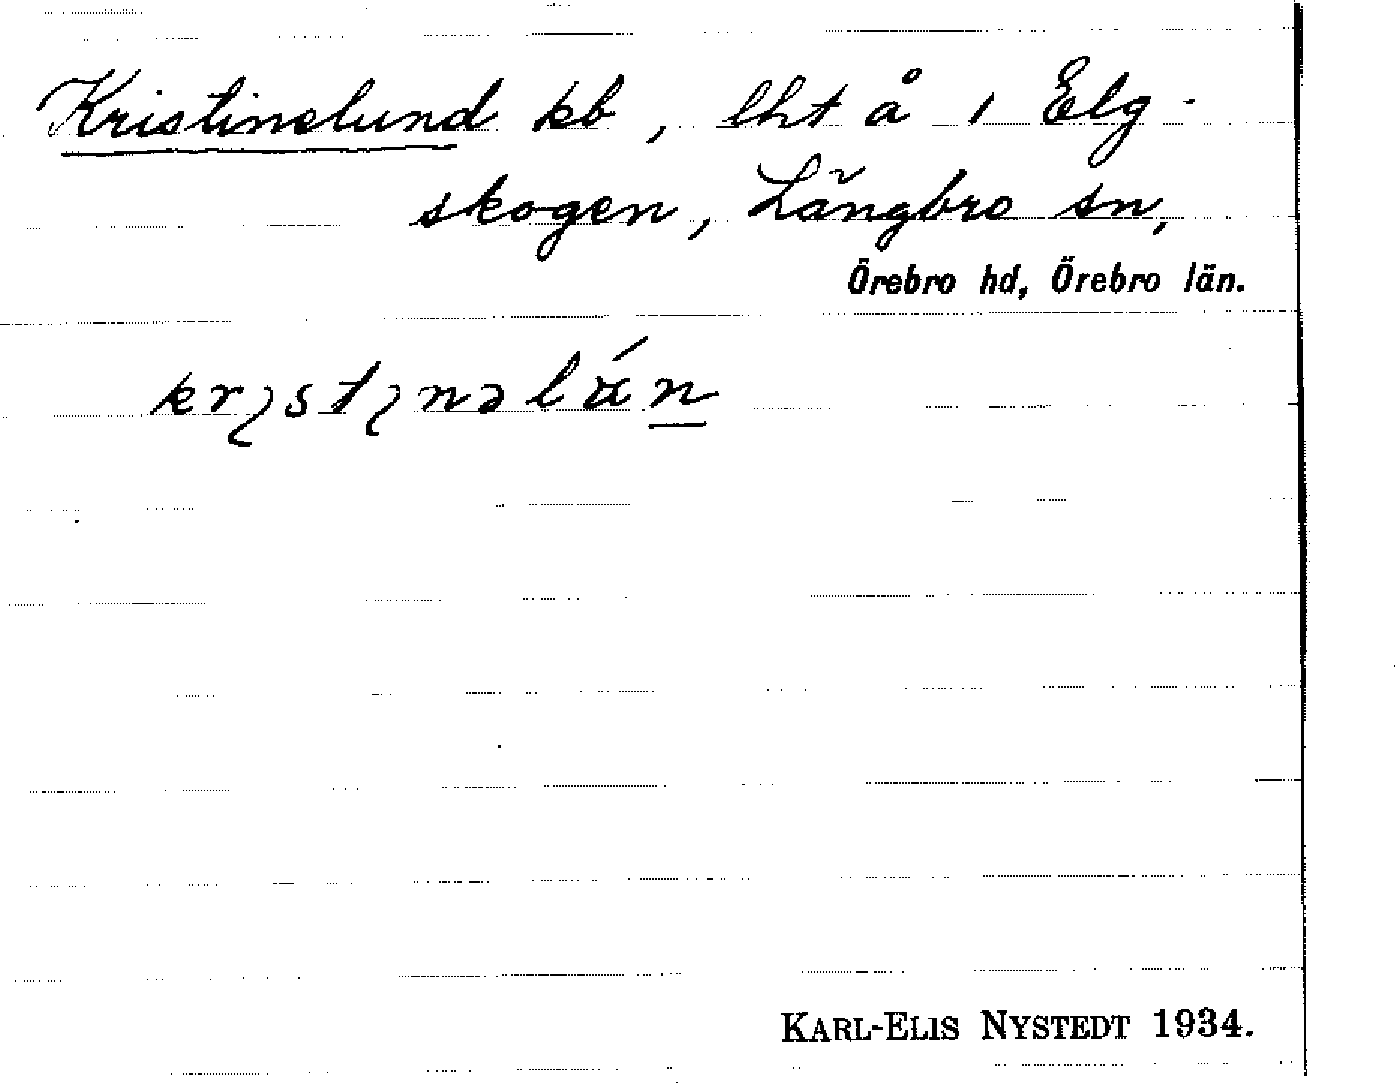 Kristinelund kb, lht å 1 Elg-
skogen, Längbro sn,
Örebro hd, Örebro län.
KARL-ELIS NYSTEDT 1934.